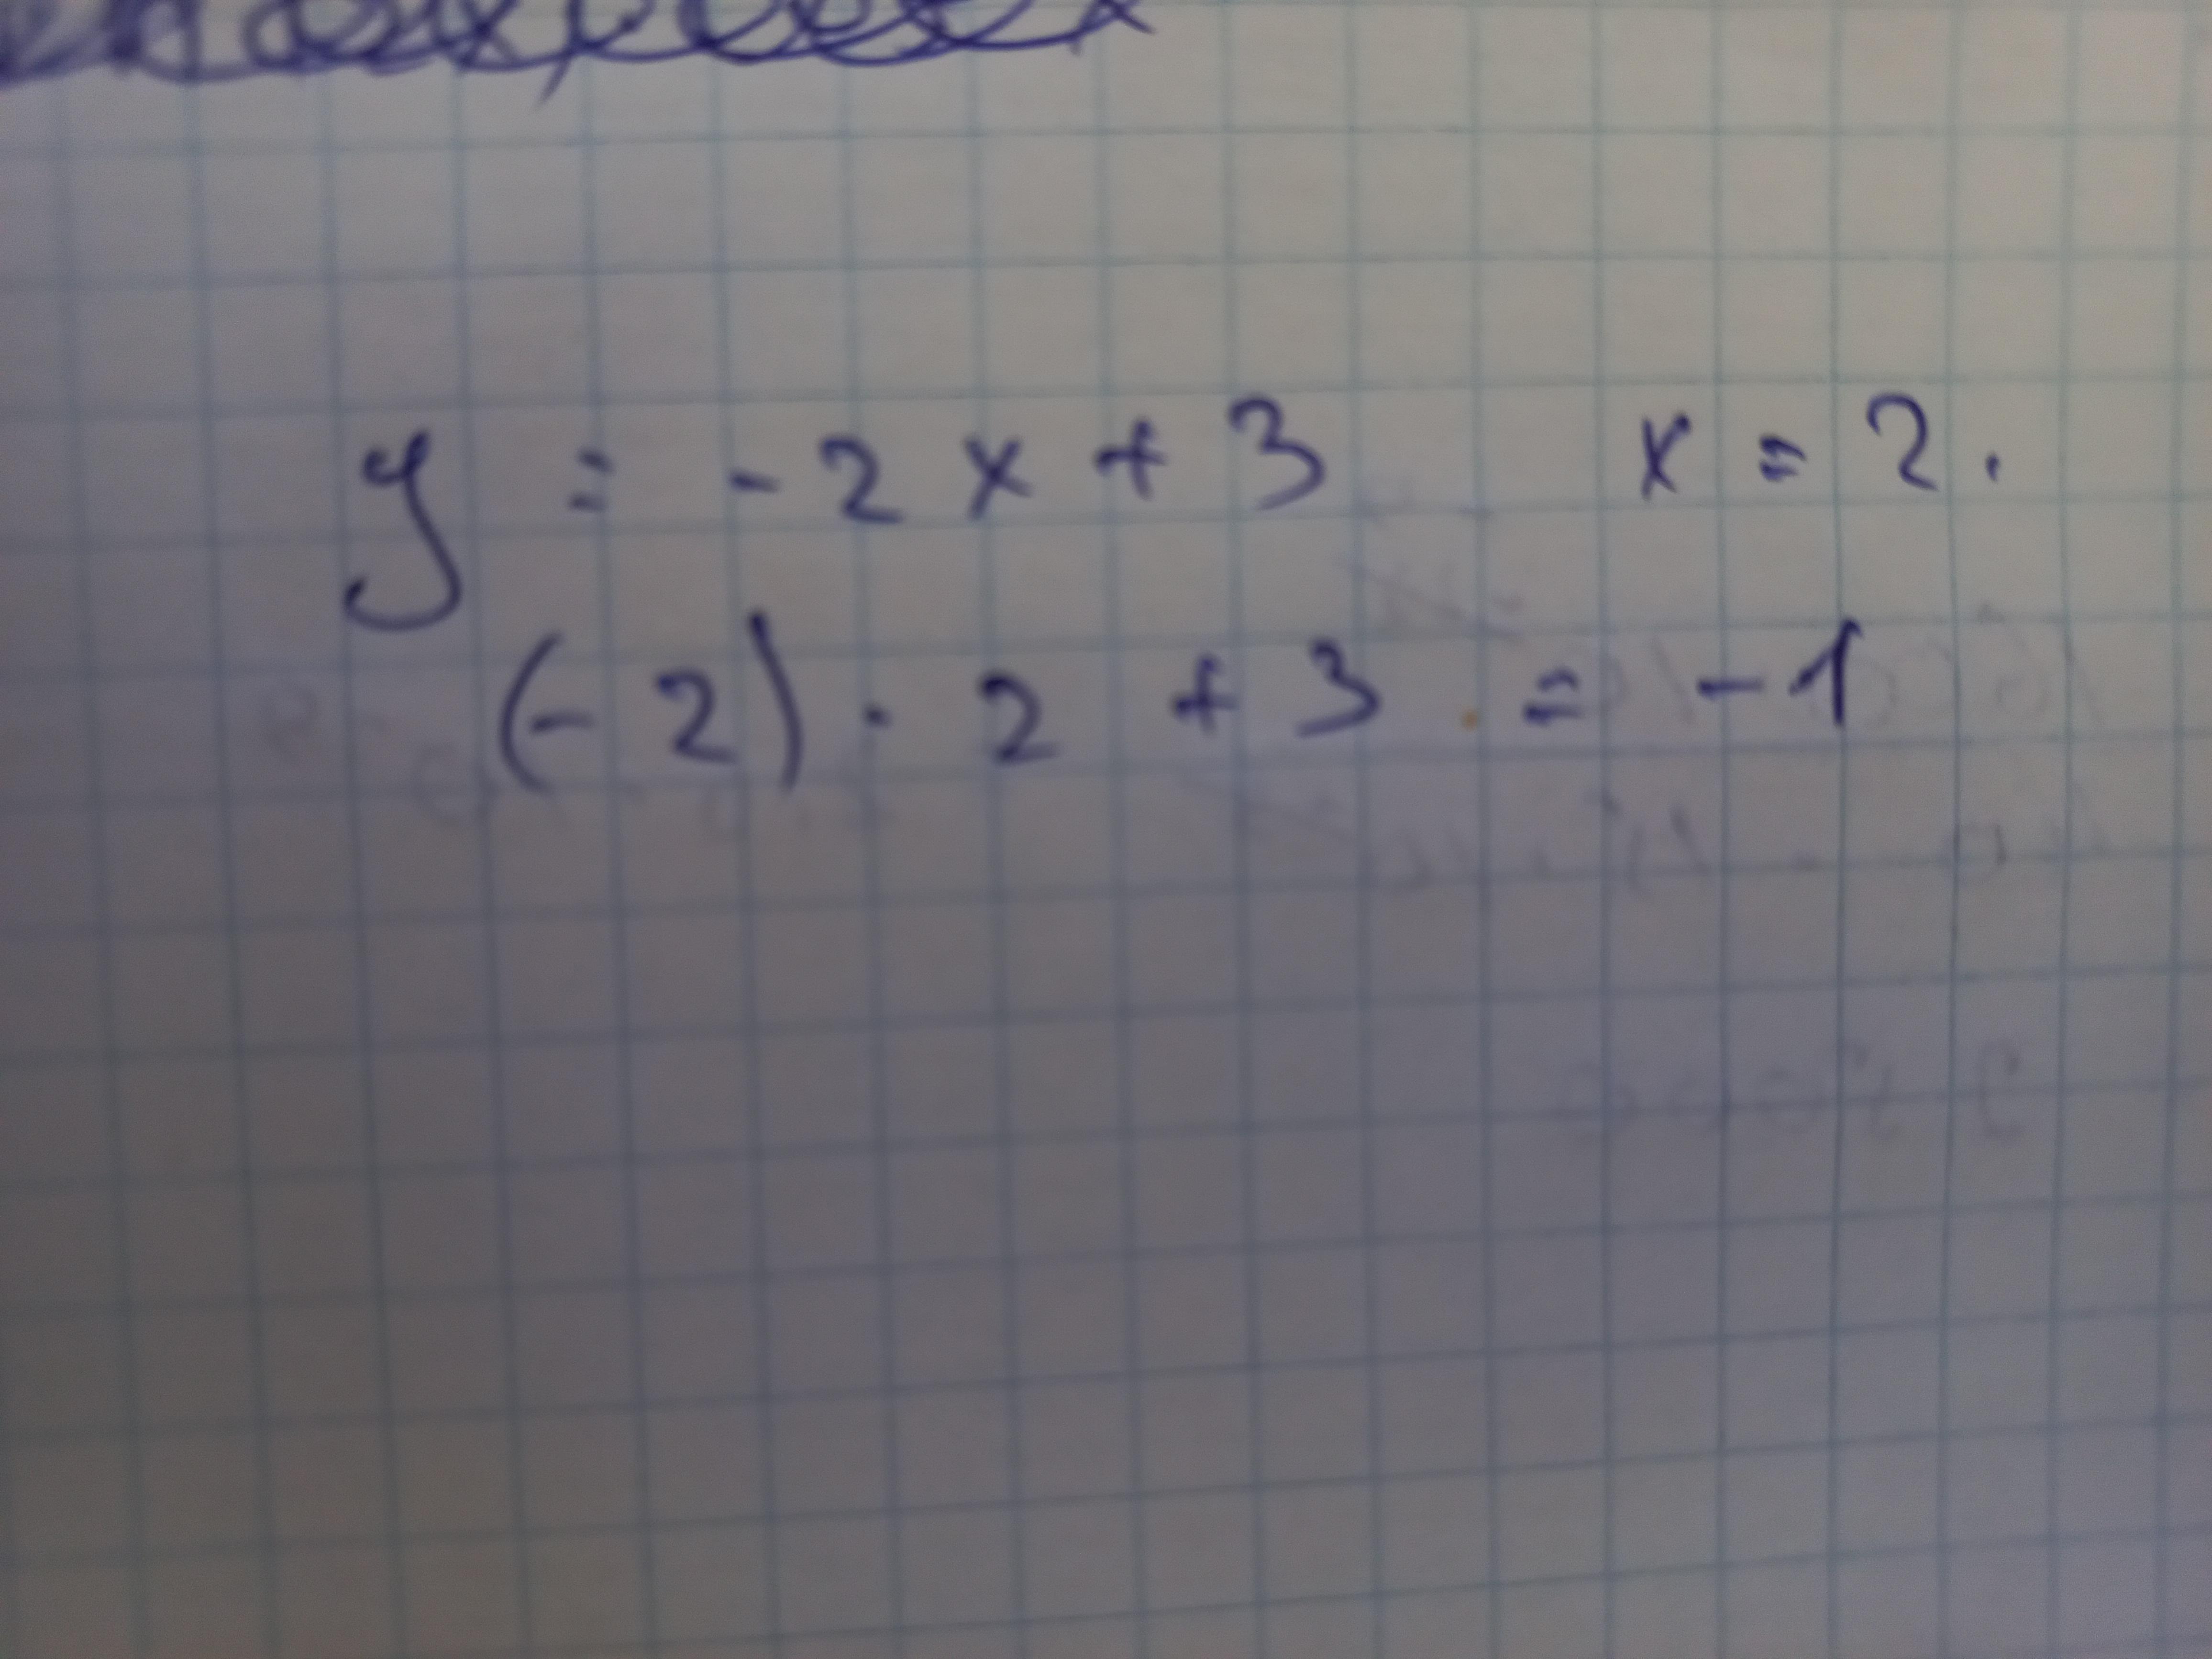 y = -2x + 3 x = 2.
(-2) · 2 + 3 = -1